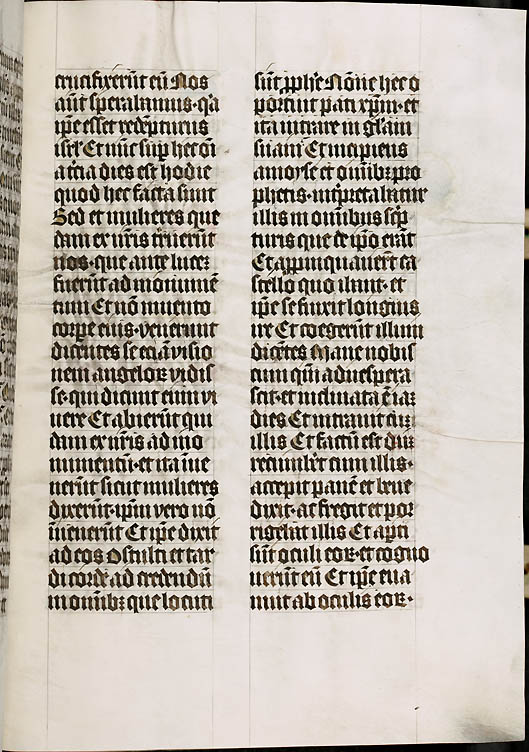 crucifixerūt eū Nos
aūt sperabamus · q'a
ip̄e esset redēpturus
isr̄l Et nūc sup̄ hec oīa
t'cia dies est hodie
quod hec facta sunt
Sed et mulieres que
dam ex n̄ris t̄ruerūt
nos · que ante lucez
fuerūt ad monumē
tum Et nōn inuento
corp̄e eius · venerunt
dicentes se eciā visio
nem angeloꝝ vidis
se · qui dicunt eum vi
uere Et abierūt qui
dam ex n̄ris ad mo
numentū · et ita īue
nerūt sicut mulieres
dixerūt · ip̄m vero nō
īuenerūt Et ip̄e dixit
ad eos O stulti et tar
di corde ad credendū
in omībꝫ que locuti
sūt ꝓph̄e Nōne hec o
portuit pati xp̄m · et
ita intrare in gl'am
suam Et incipiens
a moyse et om̄ībꝫ pro
phetis · int'pretabatur
illis in om̄ibus sc̄p
turis que de ip̄o erāt
Et appīnquauer̄t ca
stello quo ibant · et
ip̄e se finxit longius
ire Et coegerūt illum
dicētes Mane nobis
cum qm̄ aduespera
scit · et inclinata ē iaꝫ
dies Et intrauit cūꝫ
illis Et factū est dūꝫ
recumber̄t cum illis ·
accepit panē et bene
dixit · ac fregit et por
rigebat illis Et ap̄ti
sūt oculi eoꝝ · et cogno
uerūt eū Et ip̄e eua
nuit ab oculis eoꝝ ·